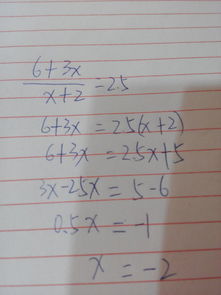 6+3x
x+2 = 2.5
6+3x = 2.5(x+2)
6+3x = 2.5x+5
3x-2.5x = 5-6
0.5x = -1
x = -2